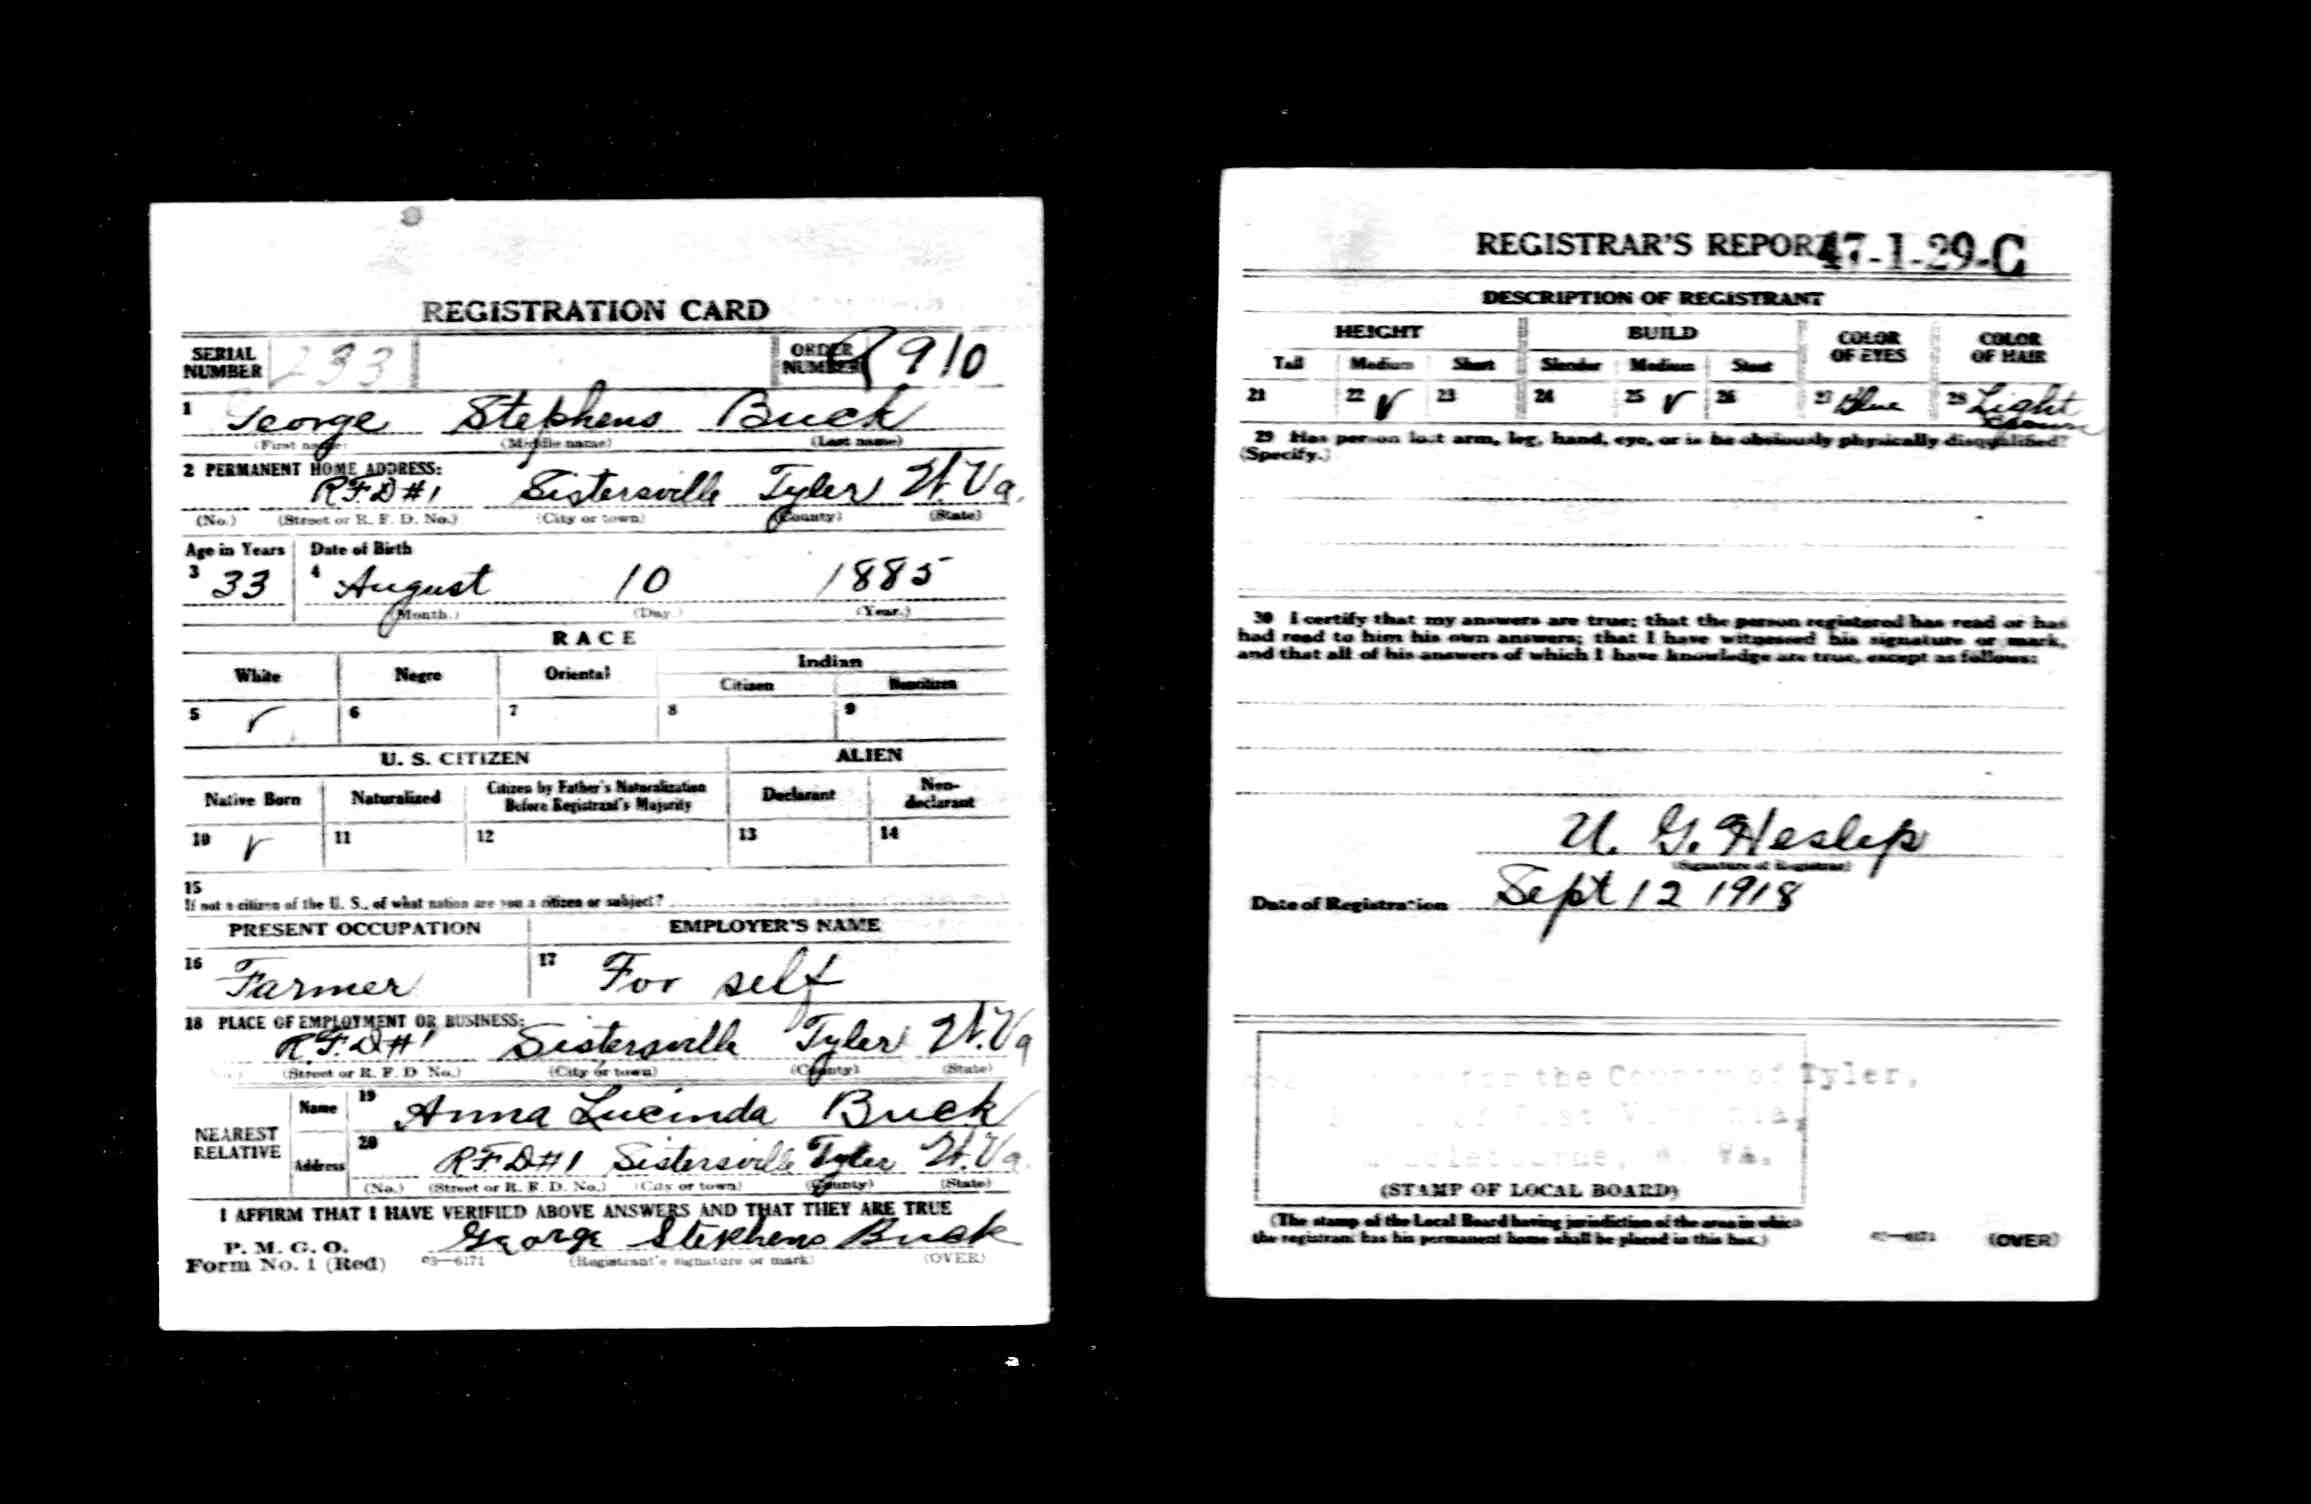 REGISTRATION CARD
SERIAL NUMBER 233 ORDER NUMBER 910
1 George Stephens Buck
(First name) (Middle name) (Last name)
2 PERMANENT HOME ADDRESS:
R F D #1 Sistersville Tyler W. Va.
(No.) (Street or R. F. D. No.) (City or town) (County) (State)
Age in Years Date of Birth
3 33 4 August 10 1885
(Month.) (Day.) (Year.)
RACE
White Negro Oriental Indian
Citizen Noncitizen
5 ✓ 6 7 8 9
U. S. CITIZEN ALIEN
Native Born Naturalized Citizen by Father's Naturalization Before Registrant's Majority Declarant Non-declarant
10 ✓ 11 12 13 14
15
If not a citizen of the U. S., of what nation are you a citizen or subject?
PRESENT OCCUPATION EMPLOYER'S NAME
16 Farmer 17 For self
18 PLACE OF EMPLOYMENT OR BUSINESS:
R. F. D #1 Sistersville Tyler W. Va
(Street or R. F. D. No.) (City or town) (County) (State)
NEAREST RELATIVE
Name 19 Anna Lucinda Buck
Address 20 R F D #1 Sistersville Tyler W. Va.
(No.) (Street or R. F. D. No.) (City or town) (County) (State)
I AFFIRM THAT I HAVE VERIFIED ABOVE ANSWERS AND THAT THEY ARE TRUE
P. M. G. O.
Form No. 1 (Red) 03—6171 George Stephens Buck
(Registrant's signature or mark) (OVER)
REGISTRAR'S REPORT 47-1-29-C
DESCRIPTION OF REGISTRANT
HEIGHT BUILD COLOR OF EYES COLOR OF HAIR
Tall Medium Short Slender Medium Stout
21 22 ✓ 23 24 25 ✓ 26 27 Blue 28 Light
29 Has person lost arm, leg, hand, eye, or is he obviously physically disqualified?
(Specify.)
30 I certify that my answers are true; that the person registered has read or has
had read to him his own answers; that I have witnessed his signature or mark,
and that all of his answers of which I have knowledge are true, except as follows:
U. G. Heslep
(Signature of Registrar)
Date of Registration Sept 12 1918
for the County of Tyler,
(STAMP OF LOCAL BOARD)
(The stamp of the Local Board having jurisdiction of the area in which
the registrant has his permanent home shall be placed in this box.)
03—6171 (OVER)